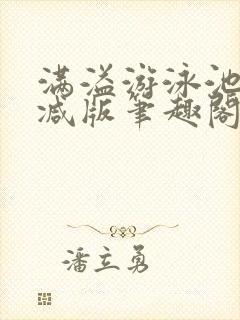 满溢游泳池
减版笔趣阁
潘立勇